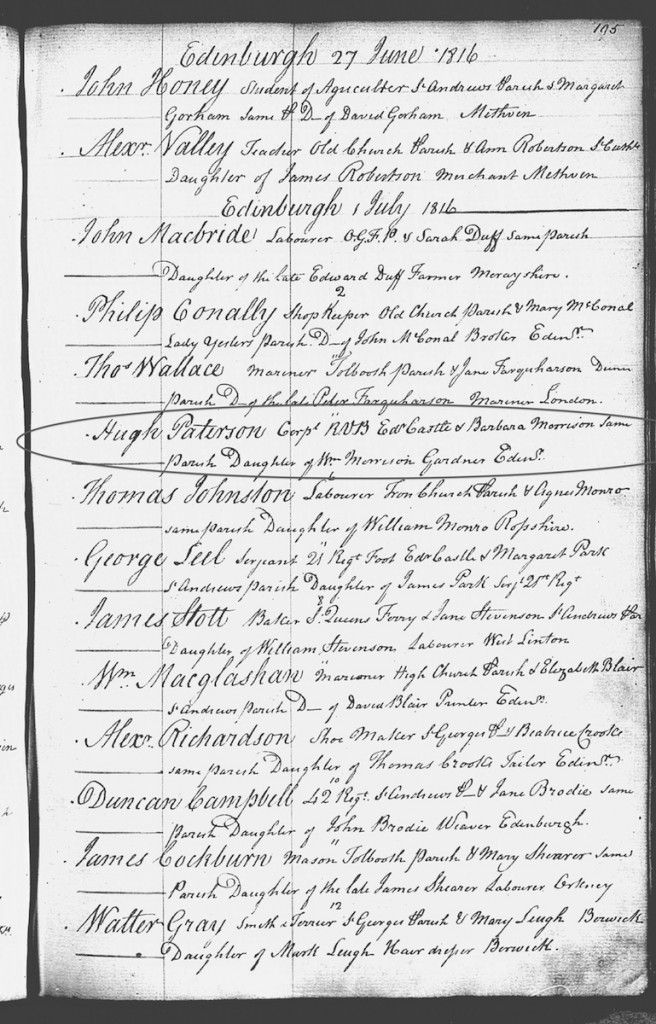 195
Edinburgh 27 June 1816
John Honey Student of Agriculter St Andrews Parish & Margaret
Gorham same P D— of David Gorham Methven
Alexr. Valley Teacher Old Church Parish & Ann Robertson St Cuthts
Daughter of James Robertson Merchant Methven
Edinburgh 1 July 1816
John Macbride Labourer O.G.F.P. & Sarah Duff same parish
Daughter of the late Edward Duff Farmer Morayshire.
2
Philip Conally Shop Keeper Old Church Parish & Mary McConal
Lady Yesters parish. D— of John McConal Broker Edinr.
Thos Wallace Mariner Tolbooth Parish & Jane Farquharson
Parish D— of the late Peter Farquharson Mariner London.
Hugh Paterson Corpl. RVB Edr Castle & Barbara Morrison same
parish Daughter of Wm Morrison Gardner Edinr.
Thomas Johnston Labourer Tron Church Parish & Agnes Monro
same parish Daughter of William Monro Rosshire.
George Leel Serjeant 21 Regt Foot Edr Castle & Margaret Park
St Andrews Parish Daughter of James Park Serjt 21st Regt
8
James Stott Baker S. Queens Ferry & Jane Stevenson St Andrews Par
Daughter of William Stevenson Labourer West Linton
Wm. Macglashan Marioner High Church Parish & Elizabeth Blair
St Andrews parish D— of David Blair Printer Edinr.
Alexr. Richardson Shoe Maker St Georges P— & Beatrice Crooks
same parish Daughter of Thomas Crooks Tailor Edinr.
10
Duncan Campbell 42 Regt. St Andrews P— & Jane Brodie same
parish Daughter of John Brodie Weaver Edinburgh.
11
James Cockburn Mason Tolbooth Parish & Mary Shearer same
Parish Daughter of the late James Shearer Labourer Orkney
12
Walter Gray Smith & Ferrier St Georges Parish & Mary Leugh Berwick
Daughter of Mark Leugh Hair dresser Berwick.